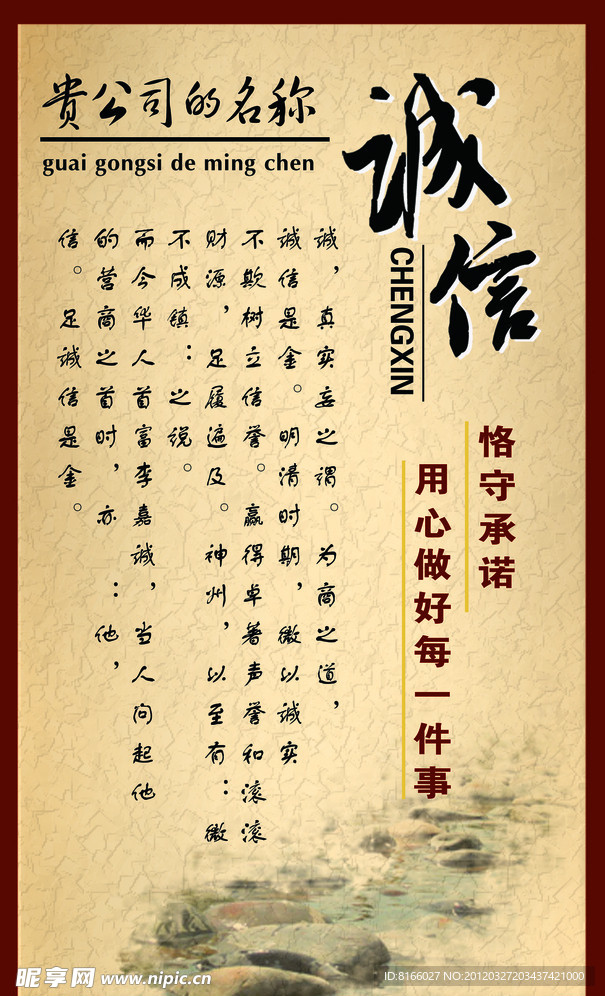 貴公司的名称
guai gongsi de ming chen
诚信
CHENGXIN
恪守承诺
用心做好每一件事
诚，真实妄之谓。为商之道，
诚信是金。明清时期，微以诚实
不欺树立信誉。赢得卓著声誉和滚滚
财源，足履遍及。神州，以至有：微
不成镇：之说。
而今华人首富李嘉诚，当人问起他
的营商之首时，亦：他，
信。足诚信是金。
昵享网 www.nipic.cn
ID:8166027 NO:20120327203437421000